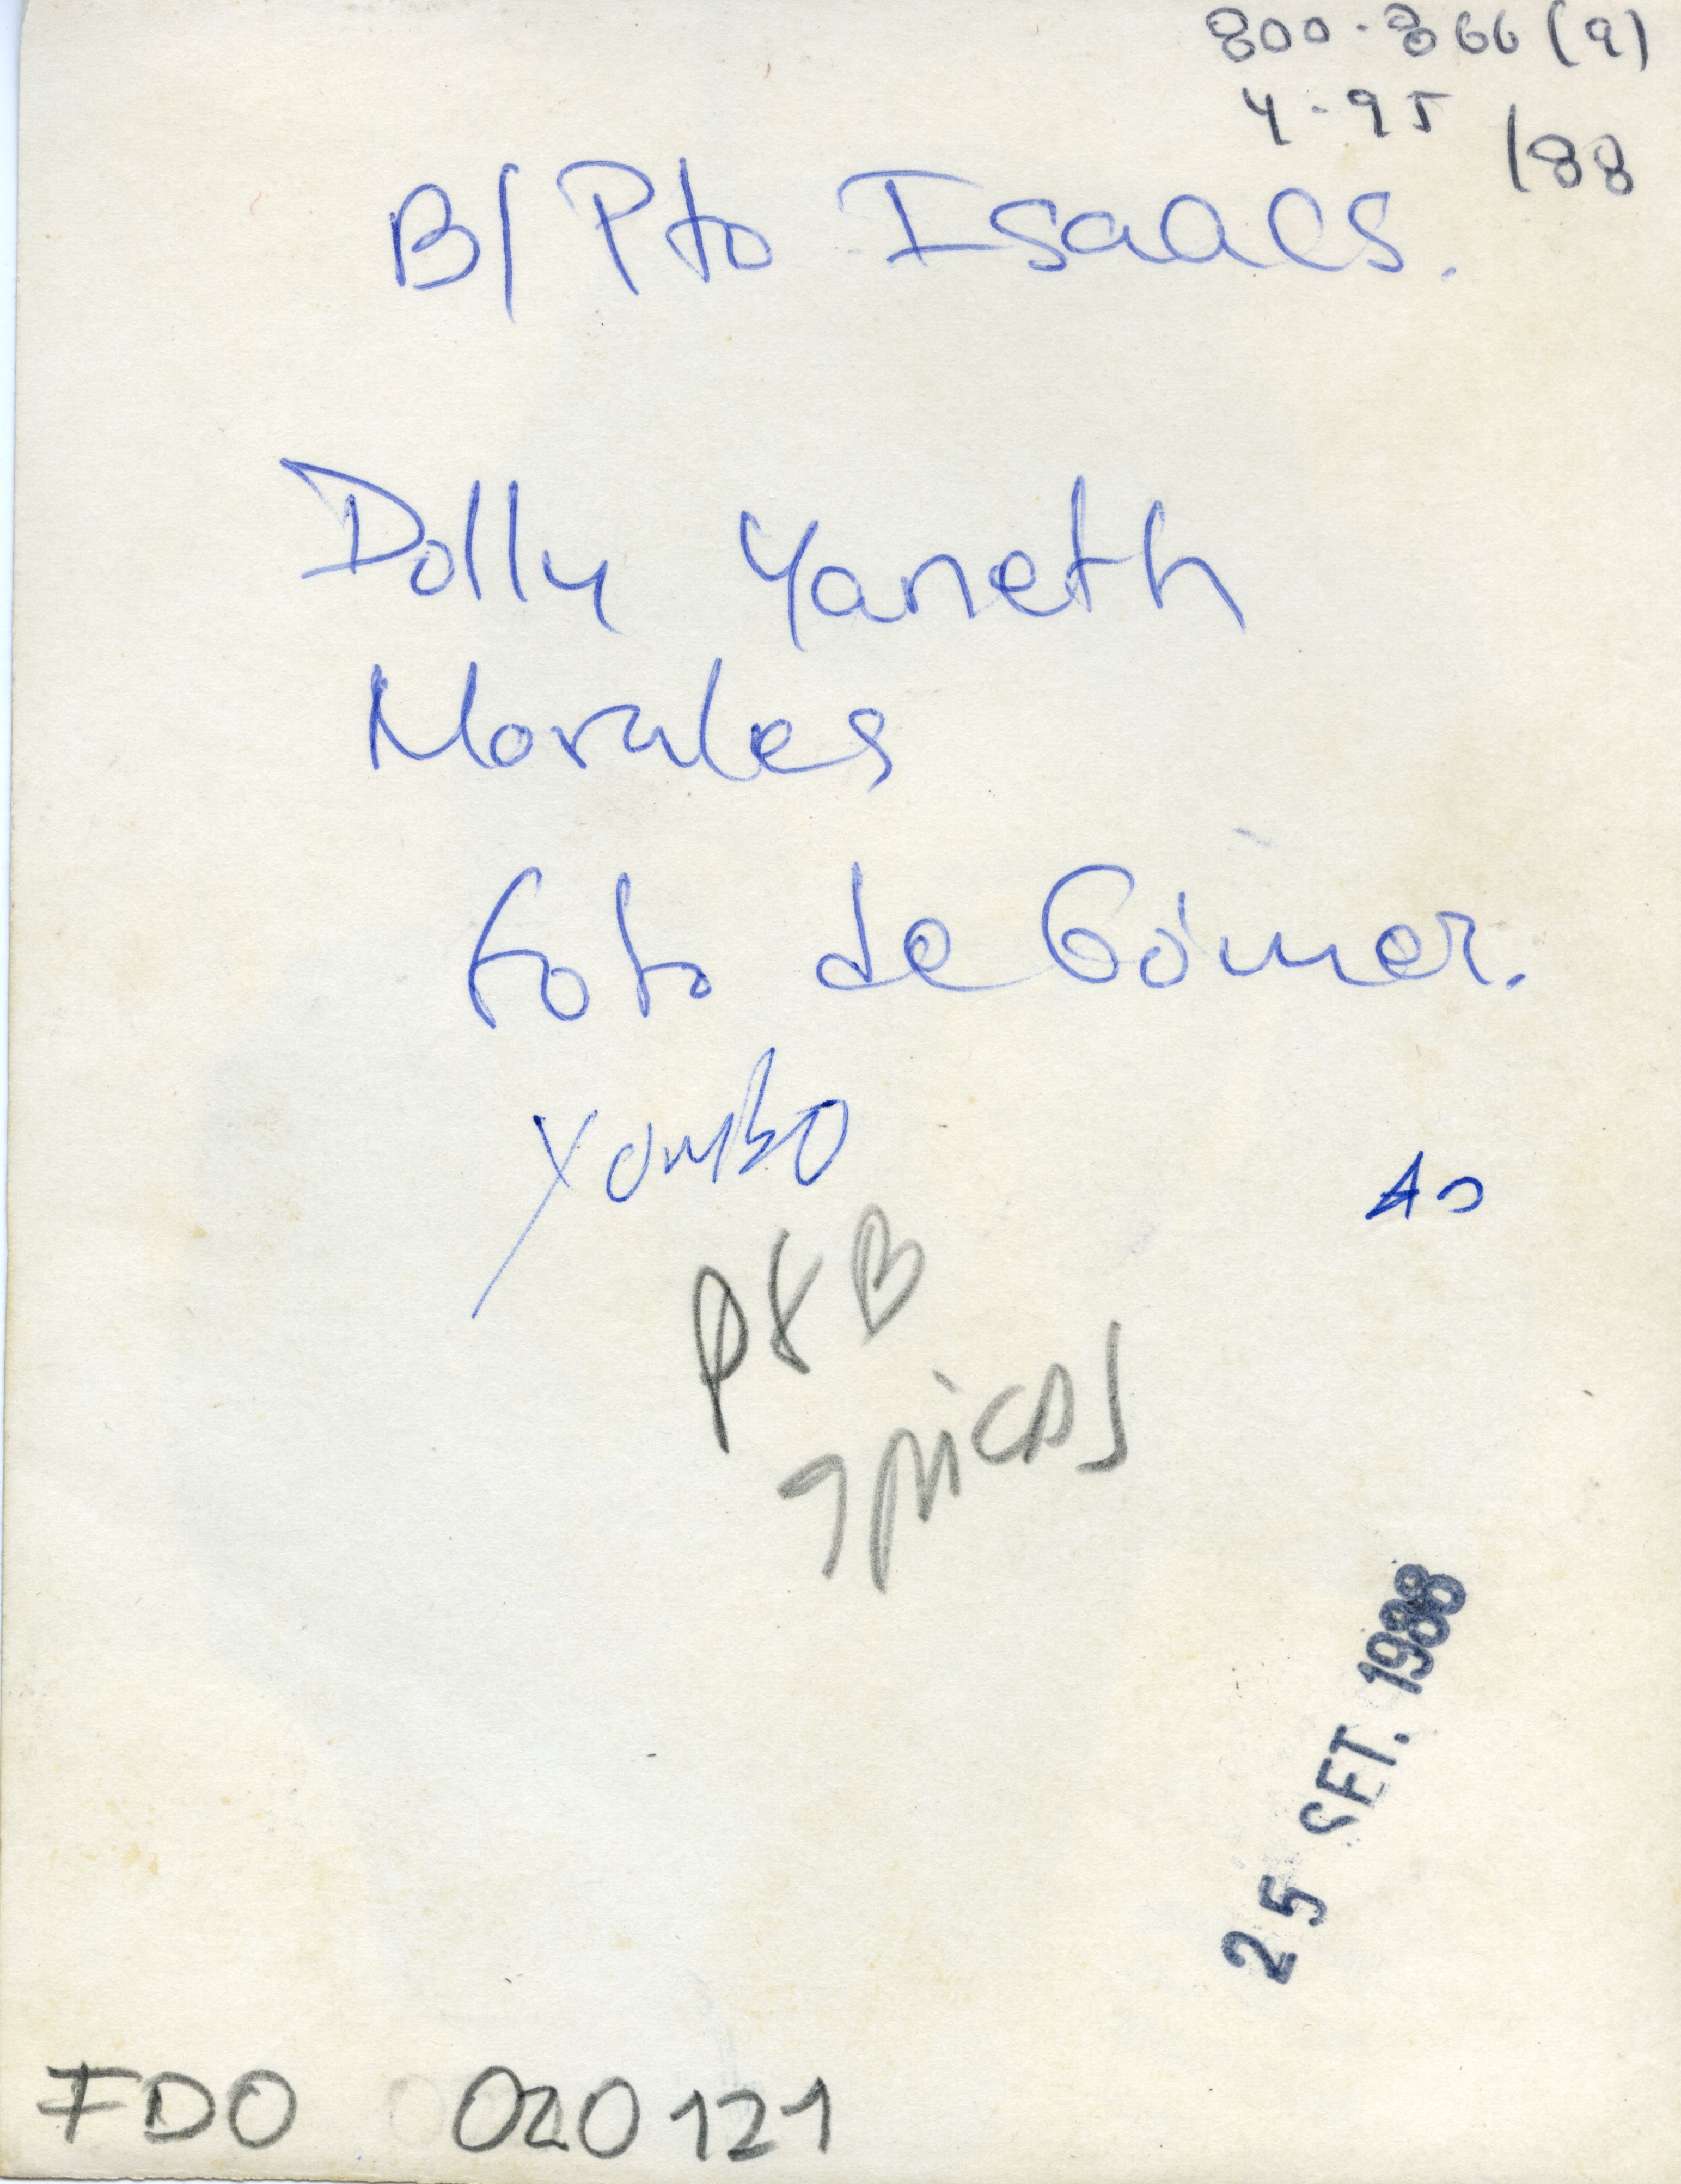 800-866 (9)
4-95 /88
B/ Pto Isaacs.
Dolly Yaneth
Morales
foto de Gómer.
Yumbo
P8B
9 picas
25 SET. 1988
FDO 020121